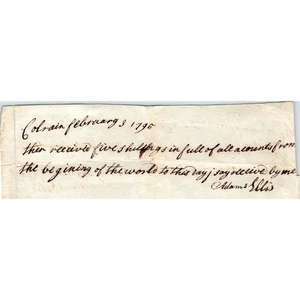 Colrain february 3 1795
then received five shillings in full of all acounts from
the begining of the world to this day j say receive by me
Adams Ellis